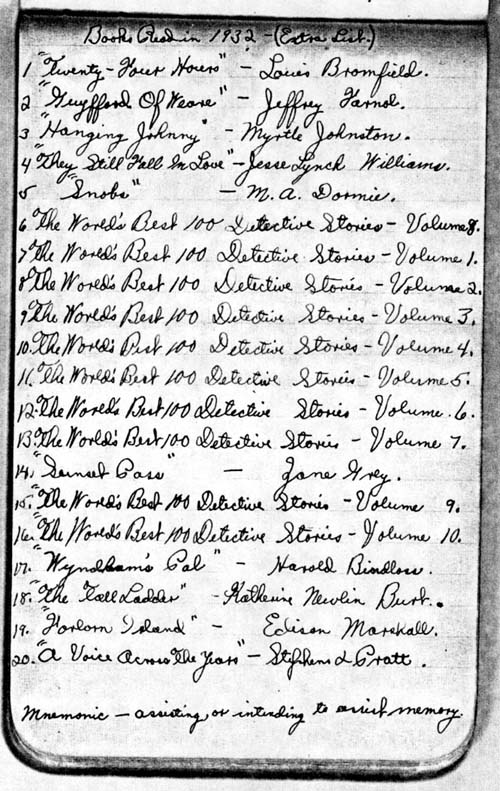 Books Read in 1932 - (Extra List.)
1 "Twenty-Four Hours" - Louis Bromfield.
2 "Guyfford Of Weare" - Jeffrey Farnol.
3 "Hanging Johnny" - Myrtle Johnston.
4 "They Still Fall In Love" - Jesse Lynch Williams.
5 "Snobs" - M. A. Dormie.
6 "The World's Best 100 Detective Stories - Volume 8.
7 "The World's Best 100 Detective Stories - Volume 1.
8 "The World's Best 100 Detective Stories - Volume 2.
9 "The World's Best 100 Detective Stories - Volume 3.
10. "The World's Best 100 Detective Stories - Volume 4.
11. "The World's Best 100 Detective Stories - Volume 5.
12. "The World's Best 100 Detective Stories - Volume 6.
13 "The World's Best 100 Detective Stories - Volume 7.
14. "Sunset Pass" - Zane Grey.
15. "The World's Best 100 Detective Stories - Volume 9.
16. "The World's Best 100 Detective Stories - Volume 10.
17. "Wyndham's Pal" - Harold Bindloss.
18. "The Tall Ladder" - Katherine Newlin Burt.
19. "Forlorn Island" - Edison Marshall.
20. "A Voice Across The Years" - Stephens & Pratt.
Mnemonic - assisting, or intending to assist memory.